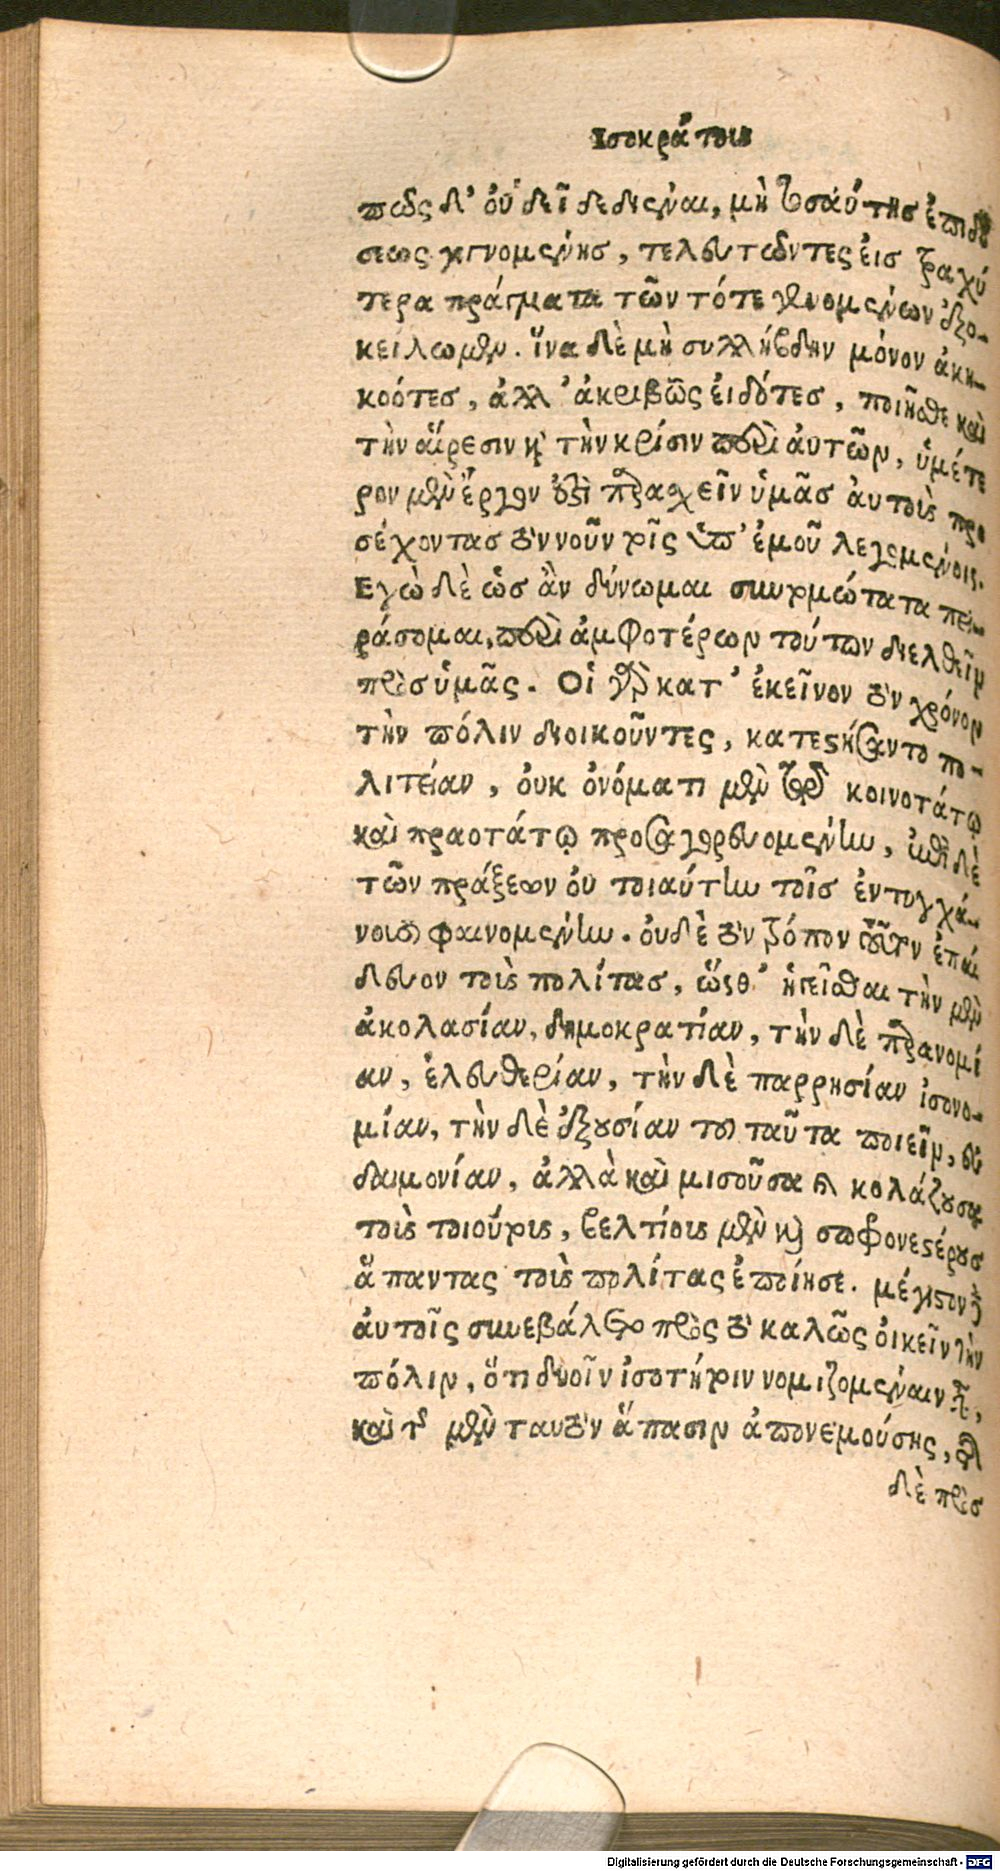 Ισοκράτους
πῶς δ' οὐ δεῖ δεδιέναι, μὴ τοσαύτης ἐπιδό
σεως γιγνομένης, τελευτῶντες εἰς τραχύ
τερα πράγματα τῶν τότε γενομένων ἐξο-
κείλωμεν. ἵνα δὲ μὴ συλλήβδην μόνον ἀκη-
κοότες, ἀλλ' ἀκριβῶς εἰδότες, ποιῆσθε καὶ
τὴν αἵρεσιν καὶ τὴν κρίσιν περὶ αὐτῶν, ὑμέτε
ρον μὲν ἔργον ἐστὶ παρασχεῖν ὑμᾶς αὐτοὺς προ
σέχοντας τὸν νοῦν τοῖς ὑπ' ἐμοῦ λεγομένοις.
Εγὼ δὲ ὡς ἂν δύνωμαι συντομώτατα πει-
ράσομαι, περὶ ἀμφοτέρων τούτων διελθεῖν
πρὸς ὑμᾶς. Οἱ γὰρ κατ' ἐκεῖνον τὸν χρόνον
τὴν πόλιν διοικοῦντες, κατεστήσαντο πο-
λιτείαν, οὐκ ὀνόματι μὲν τῷ κοινοτάτῳ
καὶ πραοτάτῳ προσαγορευομένην, ἐπὶ δὲ
τῶν πράξεων οὐ τοιαύτην τοῖς ἐντυγχά-
νουσι φαινομένην. οὐδὲ τὸν τρόπον τοῦτον ἐπαί
δευον τοὺς πολίτας, ὥσθ' ἡγεῖσθαι τὴν μὲν
ἀκολασίαν, δημοκρατίαν, τὴν δὲ παρανομί
αν, ἐλευθερίαν, τὴν δὲ παρρησίαν ἰσονο-
μίαν, τὴν δὲ ἐξουσίαν τοῦ ταῦτα ποιεῖν, εὐ
δαιμονίαν, ἀλλὰ καὶ μισοῦσα καὶ κολάζουσα
τοὺς τοιούτους, βελτίους μὲν καὶ σωφρονεστέρους
ἅπαντας τοὺς πολίτας ἐποίησε. μέγιστον δὲ
αὐτοῖς συνεβάλετο πρὸς τὸ καλῶς οἰκεῖν τὴν
πόλιν, ὅτι δυοῖν ἰσοτήτοιν νομιζομέναιν εἶναι,
καὶ τῆς μὲν ταυτὸν ἅπασιν ἀπονεμούσης, τῆς
δὲ πρὸς
Digitalisierung gefördert durch die Deutsche Forschungsgemeinschaft - DFG